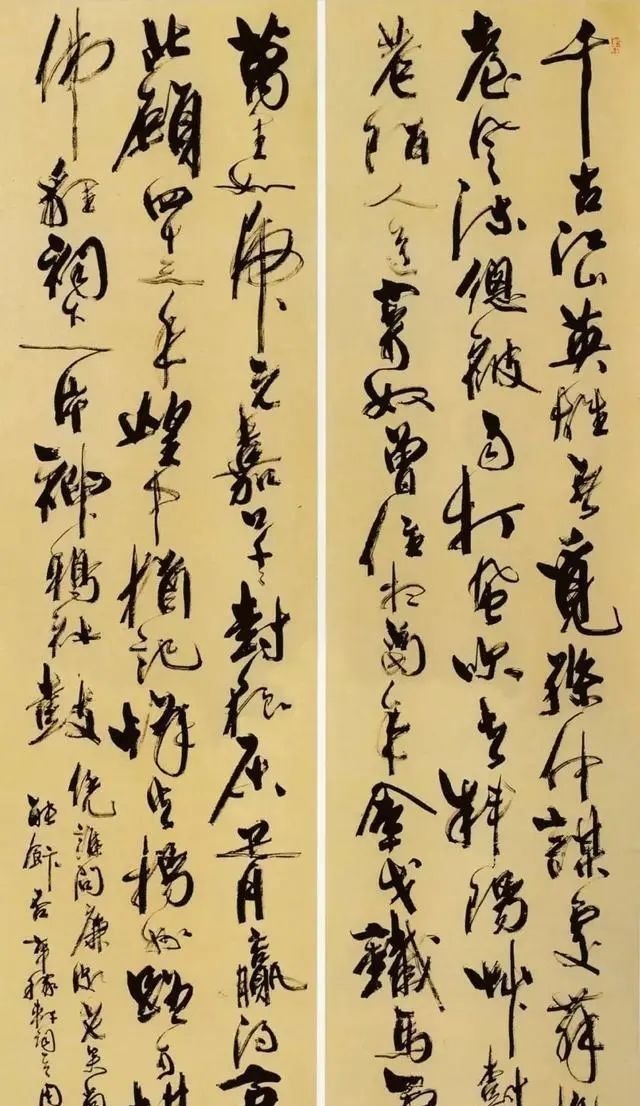 千古江山英雄無覓孫仲謀處舞
臺風流總被雨打風吹去斜陽草樹
巷陌人道寄奴曾住想當年金戈鐵馬氣
萬里如虎元嘉草草封狼居胥贏得
北顧四十三年望中猶記烽火揚州路可堪
佛貍祠下一片神鴉社鼓
憑誰問廉頗老矣尚
能飯否辛稼軒詞